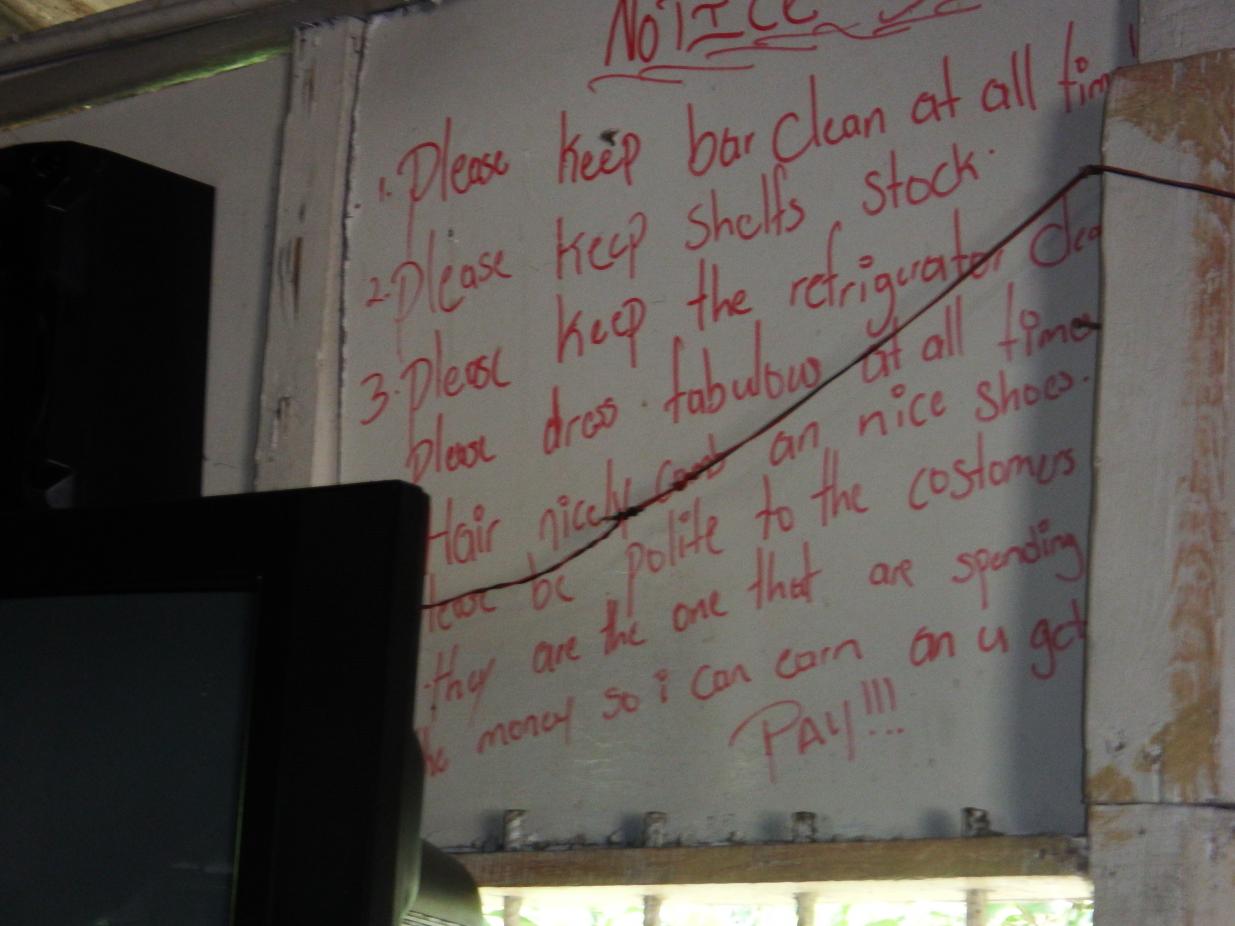 NOTICE
1. Please keep bar clean at all tim
2. Please keep shelfs stock.
3. Please keep the refriguator clea
please dress fabulous at all times
Hair nicely comb an nice shoes.
lease be polite to the costomers
they are the one that are spending
he money so i can earn an u get
PAY!!!